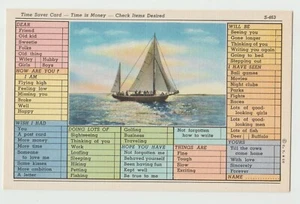 Time Saver Card — Time is Money — Check Items Desired
S-463
DEAR
Friend
Old kid
Sweetie
Folks
Old thing
Wifey
Hubby
Girls
Boys
HOW ARE YOU?
I AM
Flying high
Feeling low
Missing you
Broke
Well
Happy
WISH I HAD
You
A post rock
More money
More time
Someone
to love me
Some kisses
More ambition
A letter
DOING LOTS OF
Sightseeing
Thinking of you
Work
Loafing
Sleeping
Eating
Petting
Fishing
Golfing
Business
Traveling
HOPE YOU HAVE
Not forgotten me
Behaved yourself
Been having fun
Kept well
Be true to me
Not forgotten
how to write
THINGS ARE
Fine
Slow
Tough
Exciting
WILL BE
Seeing you
Gone longer
Thinking of you
Writing you again
Going to bed
Stepping out
I HAVE SEEN
Ball games
Movies
Night clubs
Parks
Fights
Races
Lots of good-
looking girls
Lots of good-
looking men
Lots of fish
Deer
Buffalo
YOURS
Till the cows
come home
With love
Sincerely
Forever
NAME